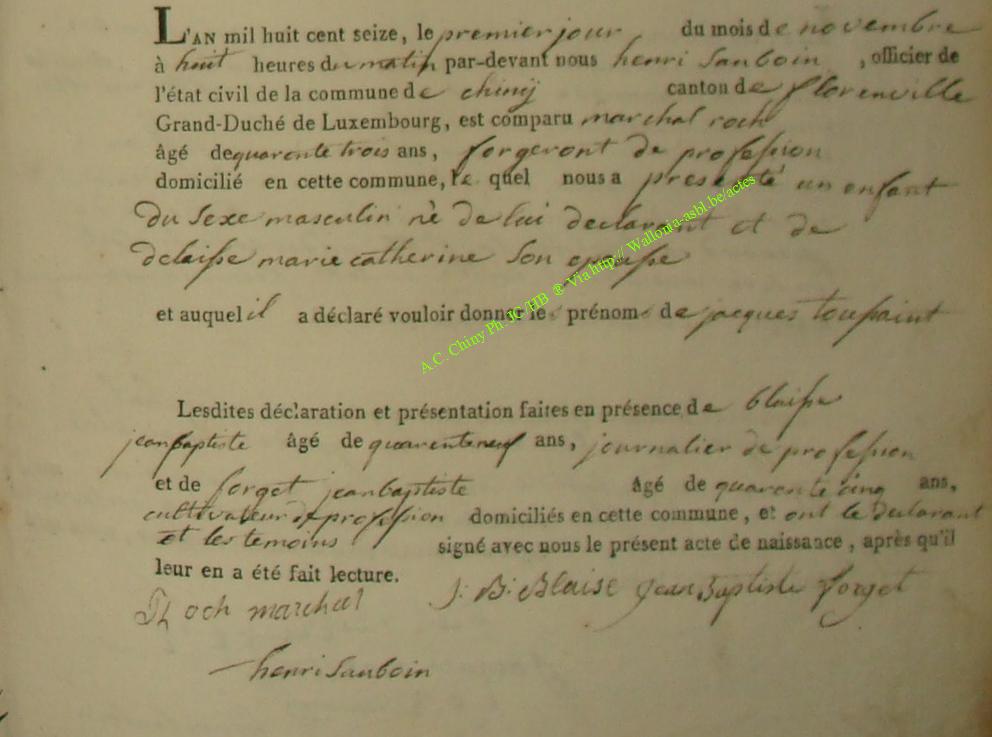 L'AN mil huit cent seize, le premier jour du mois de novembre
à huit heures du matin par-devant nous henri Sauboin , officier de
l'état civil de la commune de chinÿ canton de florenville
Grand-Duché de Luxembourg, est comparu marchal roch
âgé de quarente trois ans, forgeront de profession
domicilié en cette commune, le quel nous a presenté un enfant
du Sexe masculin nè de lui declarant et de
delaisse marie catherine Son epousse
et auquel il a déclaré vouloir donner les prénoms de jacques toussaint
Lesdites déclaration et présentation faites en présence de blaisse
jean baptiste âgé de quarente neuf ans, journalier de profession
et de forget jean baptiste âgé de quarente cinq ans,
cultivateur de profession domiciliés en cette commune, et ont le declarant
et les temoins signé avec nous le présent acte de naissance, après qu'il
leur en a été fait lecture.
Roch marchal J: B: Blaise Jean Baptiste forget
henri Sauboin
A.C. Chiny Ph. JC/HB ® Via http// Wallonia-asbl.be/actes